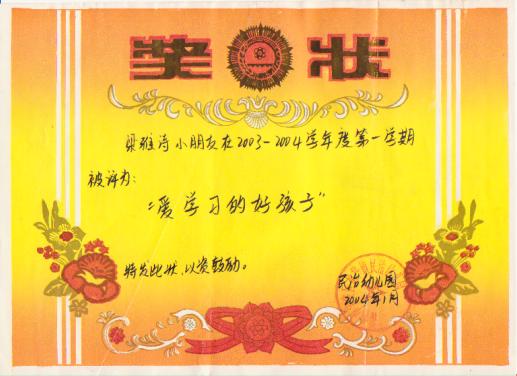 奖状
梁雅诗小朋友在2003-2004学年度第一学期
被评为:
"爱学习的好孩子"
特发此状,以资鼓励。
民治幼儿园
2004年1月